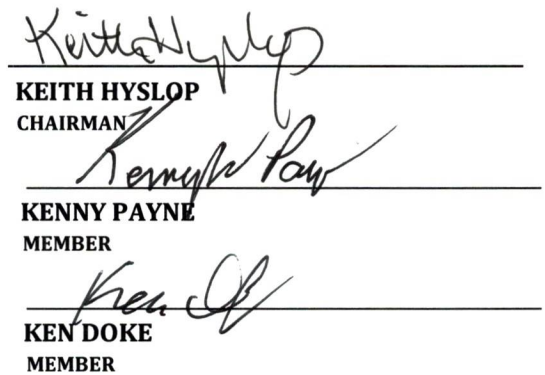 Keith Hyslop
KEITH HYSLOP
CHAIRMAN
Kenny Payne
KENNY PAYNE
MEMBER
Ken Doke
KEN DOKE
MEMBER